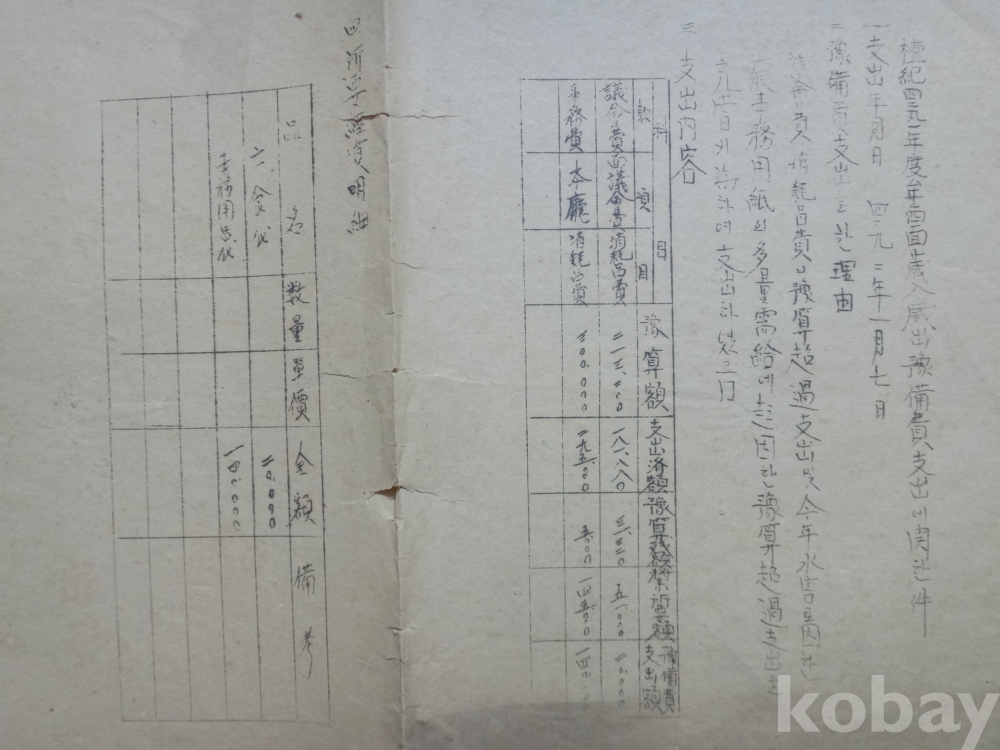 檀紀四二九一年度牟西面歲入歲出豫備費支出에関한件
一 支出年月日 四二九二年一月七日
二 豫備費支出을한理由
議會費消耗品費는豫算超過支出및今年水害로因한
一般事務用紙의多量需給에起因한豫算超過支出을
하며支出하였고
三 支出内容
科目
款 項 目 豫算額 支出済額 豫算殘額 所要額 豫備費支出額
議會費 面議會費 消耗品費 二一三、二〇〇 一八一、八八〇 三一、三二〇 五一、〇〇〇 二〇、〇〇〇
事務費 本廳 消耗品費 三〇〇、〇〇〇 二九五、〇〇〇 五、〇〇〇 一四五、〇〇〇 一四〇、〇〇〇
四 所要經費明細
品名 数量 單價 金額 備考
食代 二〇、〇〇〇
事務用品代 一四〇、〇〇〇
kobay